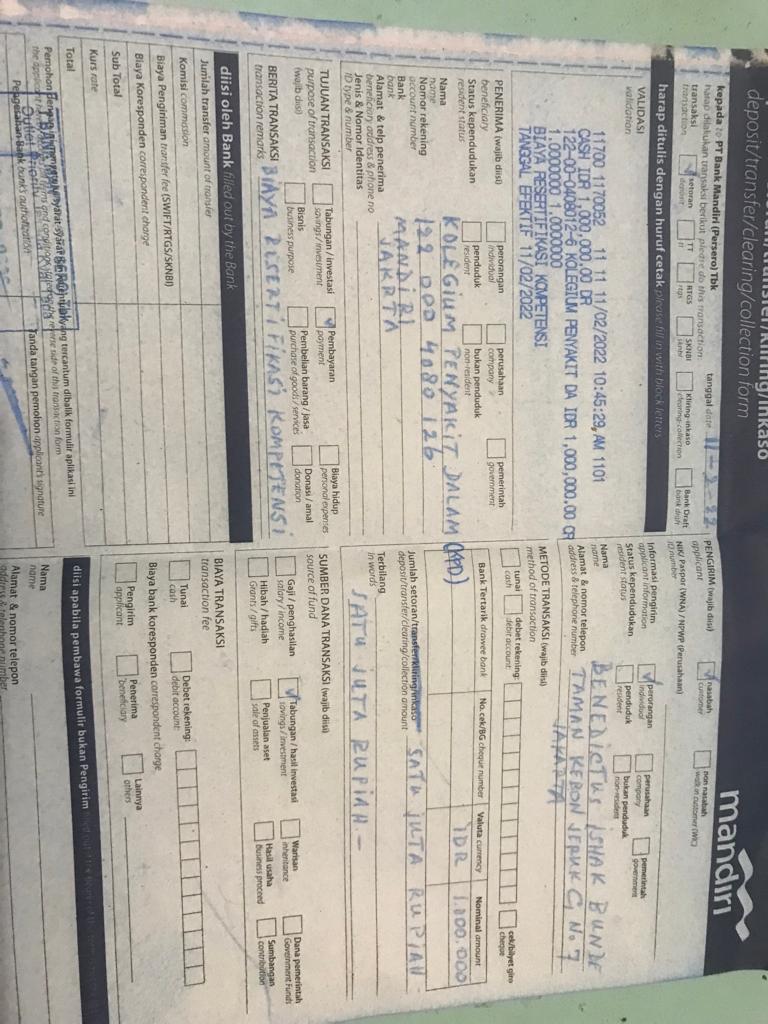 setoran/transfer/kliring/inkaso
deposit/transfer/clearing/collection form
mandiri
kepada to PT Bank Mandiri (Persero) Tbk
tanggal date 11-2-22
harap dilakukan transaksi berikut please do this transaction
transaksi
transaction
setoran
deposit
TT
tt
RTGS
rtgs
SKNBI
sknbi
Kliring-Inkaso
clearing-collection
Bank Draft
bank draft
harap ditulis dengan huruf cetak please fill in with block letters
VALIDASI
validation
11700 1170052 11 11 11/02/2022 10:45:29 AM 1101
CASH IDR 1,000,000.00 DR
122-00-0408012-6 KOLEGIUM PENYAKIT DA IDR 1,000,000.00 CR
1.0000000 1.0000000
BIAYA RESERTIFIKASI KOMPETENSI
TANGGAL EFEKTIF 11/02/2022
PENERIMA (wajib diisi)
beneficiary
perorangan
individual
perusahaan
company
pemerintah
government
Status kependudukan
resident status
penduduk
resident
bukan penduduk
non-resident
Nama
name
KOLEGIUM PENYAKIT DALAM (KPD)
Nomor rekening
account number
122 000 4080126
Bank
bank
MANDIRI
Alamat & telp penerima
beneficiary address & phone no
JAKARTA
Jenis & Nomor Identitas
ID type & number
TUJUAN TRANSAKSI
purpose of transaction
(wajib diisi)
Tabungan / investasi
savings / investment
Pembayaran
payment
Biaya hidup
personal expenses
Bisnis
business purpose
Pembelian barang / jasa
purchase of goods / services
Donasi / amal
donation
BERITA TRANSAKSI
transaction remarks
BIAYA RESERTIFIKASI KOMPETENSI
diisi oleh Bank filled out by the Bank
Jumlah transfer amount of transfer
Komisi commission
Biaya Pengiriman transfer fee (SWIFT/RTGS/SKNBI)
Biaya Koresponden correspondent charge
Sub Total
Kurs rate
Total
Pengesahan Bank bank's authorization
Tanda tangan pemohon applicant's signature
PENGIRIM (wajib diisi)
applicant
nasabah
customer
non nasabah
walk in customer (WIC)
NIK/ Paspor (WNA) / NPWP (Perusahaan)
ID number
Informasi pengirim
applicant information
perorangan
individual
perusahaan
company
pemerintah
government
Status kependudukan
resident status
penduduk
resident
bukan penduduk
non-resident
Nama
name
BENEDICTUS ISHAK BUNDE
Alamat & nomor telepon
address & telephone number
TAMAN KEBON JERUK G No 7
JAKARTA
METODE TRANSAKSI (wajib diisi)
method of transaction
tunai
cash
debet rekening:
debit account:
cek/bilyet giro
cheque
Bank Tertarik drawee bank
No. cek/BG cheque number
Valuta currency
Nominal amount
IDR
1.000.000
Jumlah setoran/transfer/kliring/inkaso
deposit/transfer/clearing/collection amount
SATU JUTA RUPIAH -
Terbilang
in words
SATU JUTA RUPIAH. -
SUMBER DANA TRANSAKSI (wajib diisi)
source of fund
Gaji / penghasilan
salary / income
Tabungan / hasil investasi
savings / investment
Warisan
inheritance
Dana pemerintah
Government Funds
Hibah / hadiah
Grants / gifts
Penjualan aset
sale of assets
Hasil usaha
Business proceed
Sumbangan
contribution
BIAYA TRANSAKSI
transaction fee
Tunai
cash
Debet rekening:
debit account:
Biaya bank koresponden correspondent charge
Pengirim
applicant
Penerima
beneficiary
Lainnya
others
diisi apabila pembawa formulir bukan Pengirim
Nama
name
Alamat & nomor telepon
address & telephone number